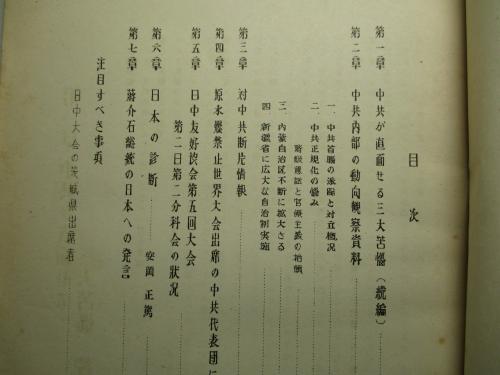 目次
第一章 中共が直面せる三大苦惱(続編)
第二章 中共内部の動向観察資料
一、中共首脳の派閥と対立概況
二、中共正規化の惱み
階級意識と官僚主義の抬頭
三、内蒙自治区不断に拡大さる
四、新疆省に広大な自治制実施
第三章 対中共断片情報
第四章 原水爆禁止世界大会出席の中共代表団に
第五章 日中友好協会第五回大会
第二日第二分科会の狀況
第六章 日本の診断 安岡正篤
第七章 蔣介石総統の日本への発言
注目すべき事項
日中大会の茨城県出席者